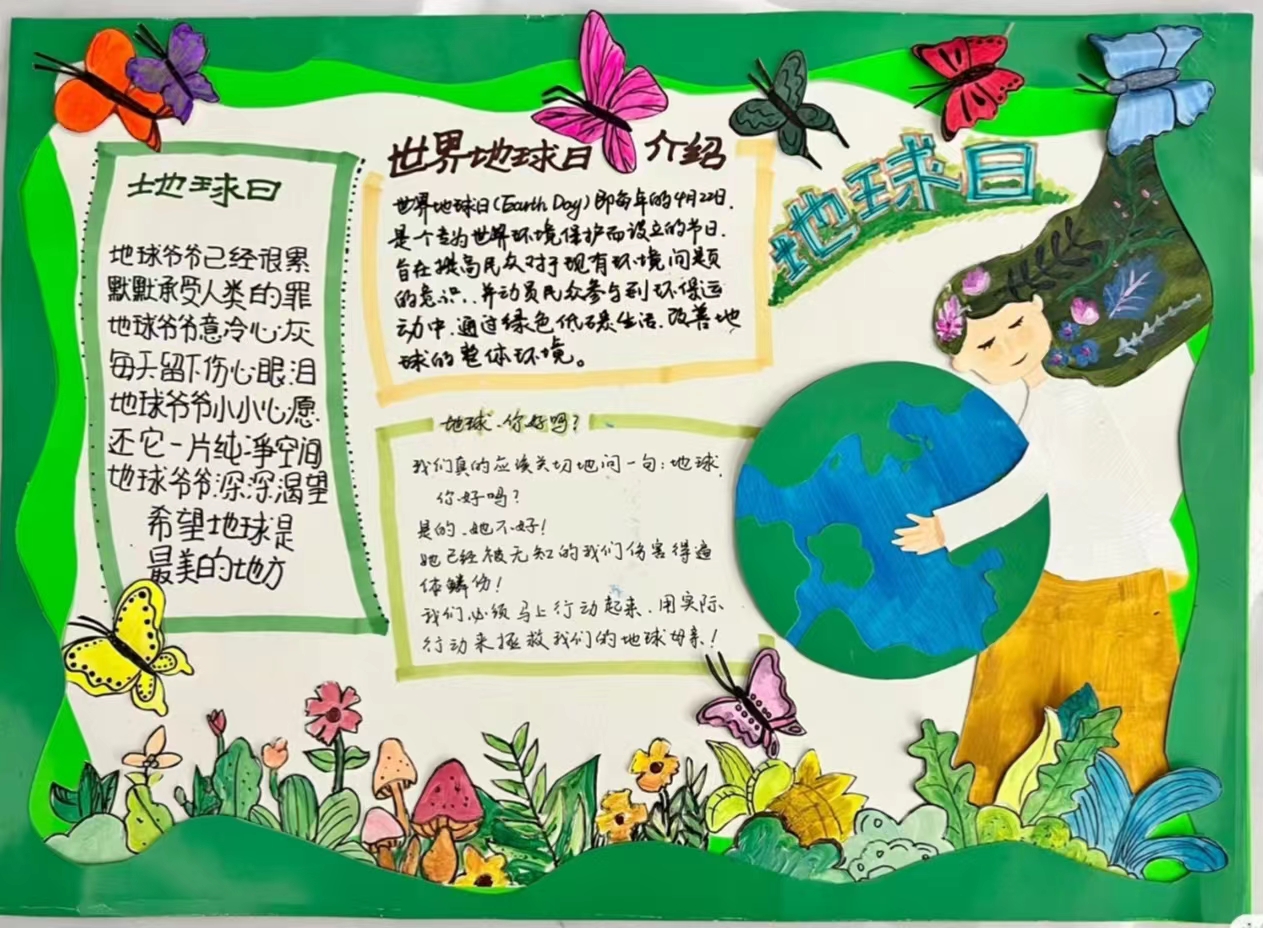 地球日
地球爷爷已经很累
默默承受人类的罪
地球爷爷意冷心灰
每天留下伤心眼泪
地球爷爷小小心愿
还它一片纯净空间
地球爷爷深深渴望
希望地球是
最美的地方
世界地球日 介绍
世界地球日(Earth Day)即每年的4月22日,
是个专为世界环境保护而设立的节日.
旨在提高民众对于现有环境问题
的意识,并动员民众参与到环保运
动中.通过绿色低碳生活.改善地
球的整体环境。
地球日
地球.你好吗?
我们真的应该关切地问一句:地球,
你好吗?
是的.她不好!
她已经被无知的我们伤害得遍
体鳞伤!
我们必须马上行动起来.用实际
行动来拯救我们的地球母亲!